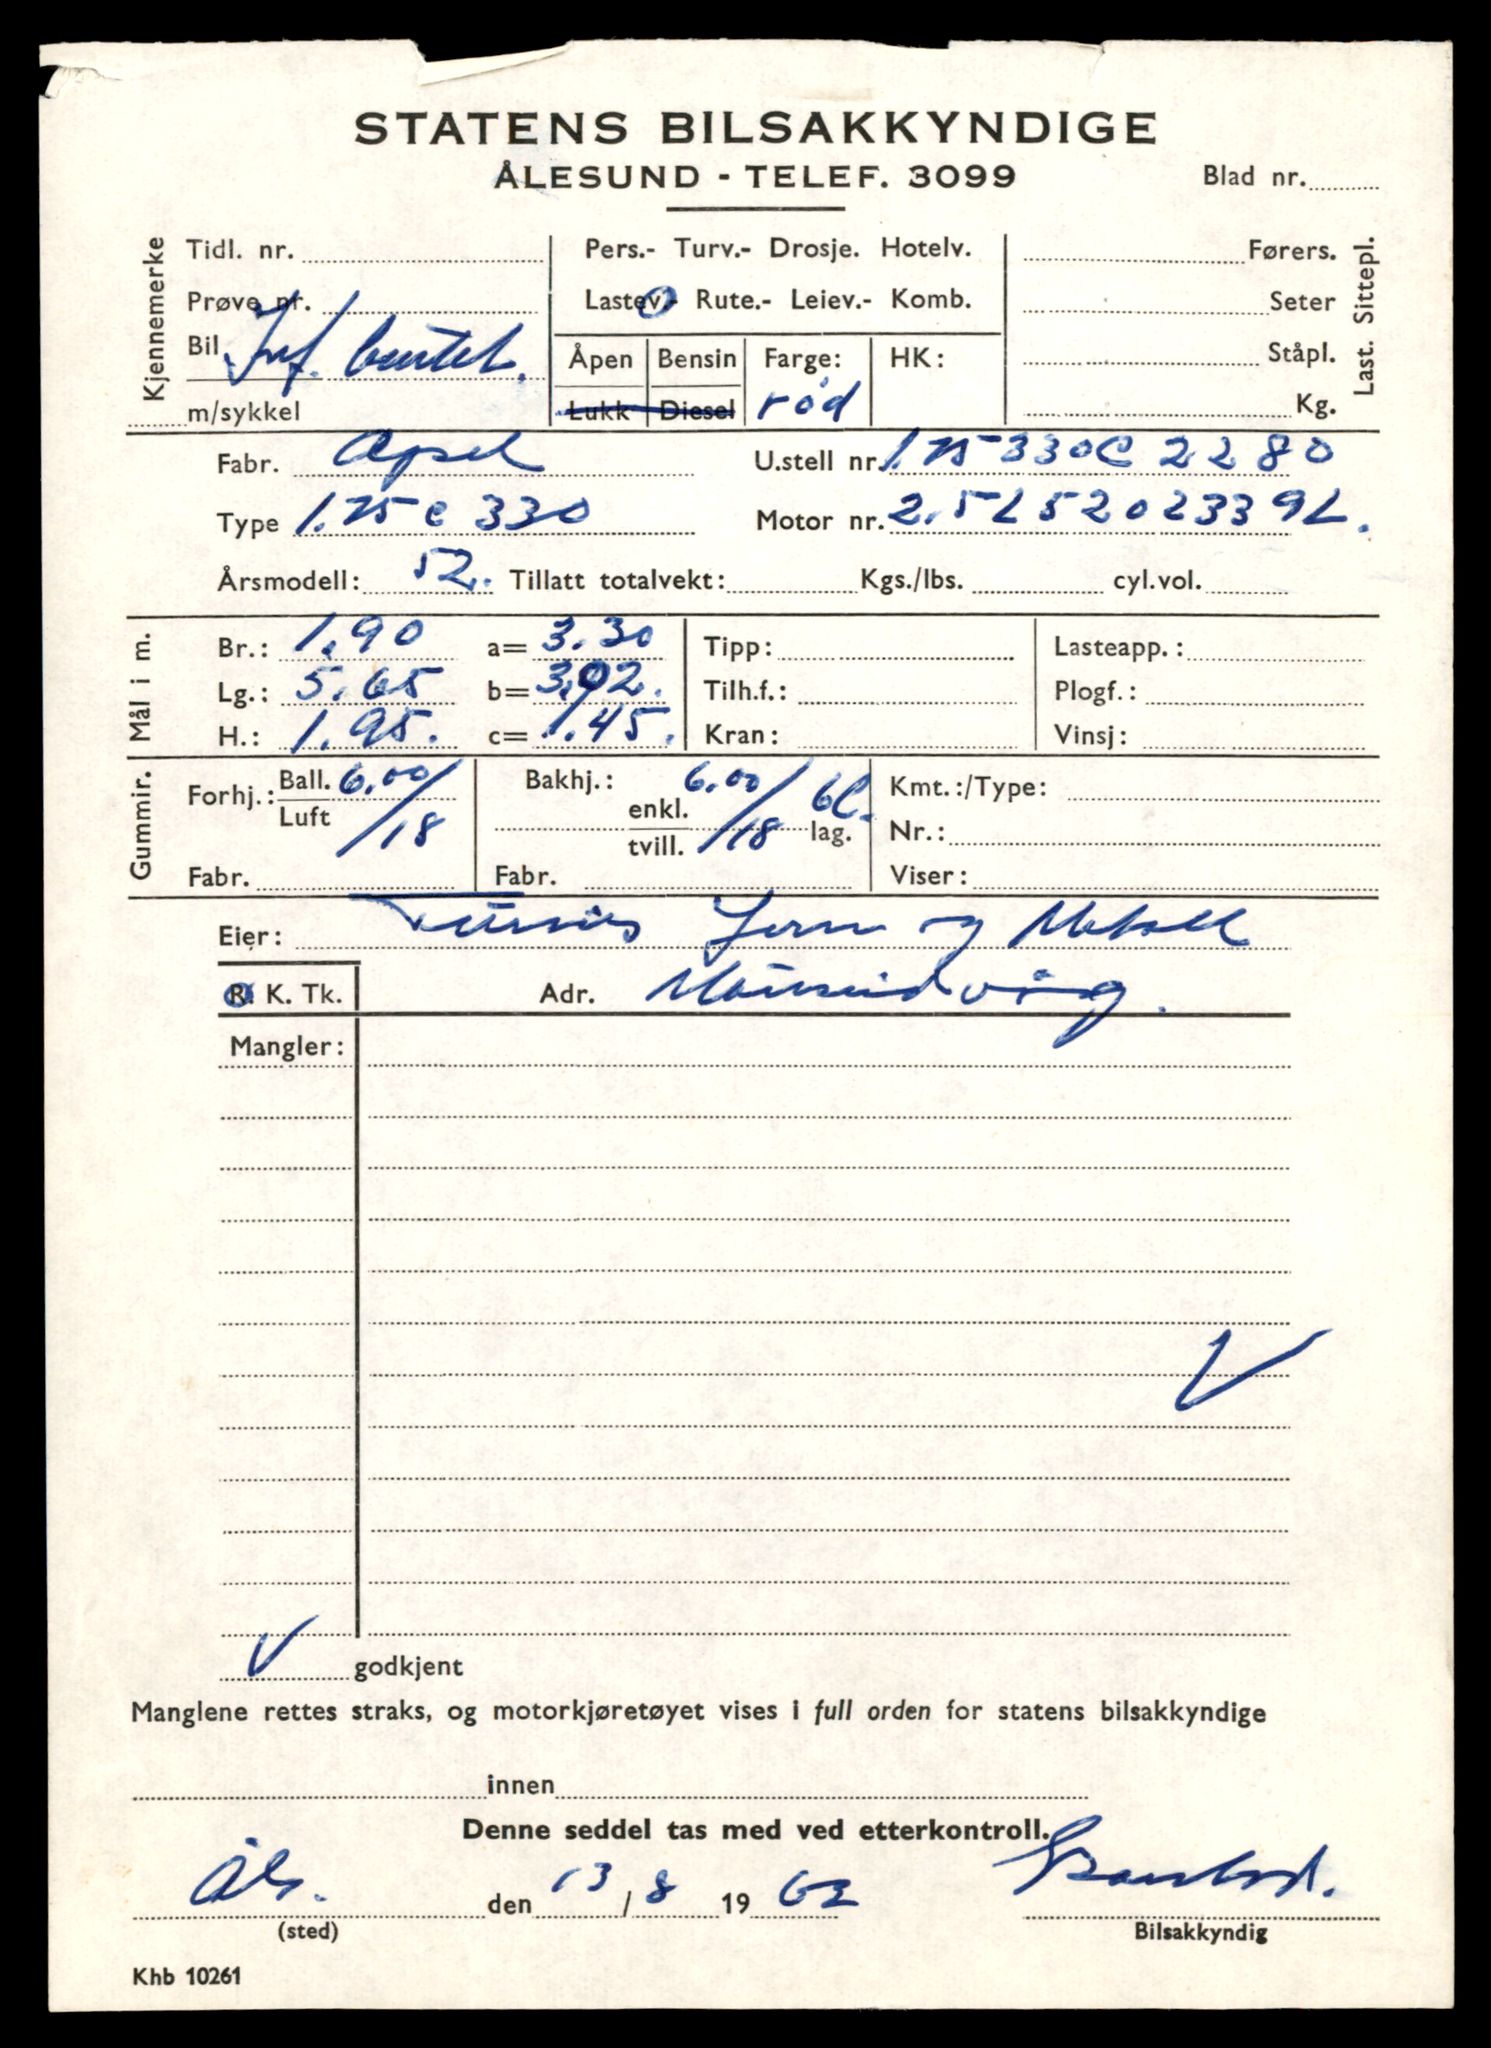 STATENS BILSAKKYNDIGE
ÅLESUND - TELEF. 3099
Blad nr.
Kjennemerke
Tidl. nr.
Prøve nr.
Bil
m/sykkel
Pers.- Turv.- Drosje. Hotelv.
Lastev.- Rute.- Leiev.- Komb.
Åpen Bensin Farge: HK:
Lukk Diesel rød
Førers.
Seter
Ståpl.
Kg.
Last. Sittepl.
Fabr. Opel U.stell nr. 1.75-330C 2280
Type 1.75 C 330 Motor nr. 2.5L5202339L.
Årsmodell: 52. Tillatt totalvekt: Kgs./lbs. cyl.vol.
Mål i m.
Br.: 1.90 a= 3.30 Tipp: Lasteapp.:
Lg.: 5.65 b= Tilh.f.: Plogf.:
H.: 1.95. c= 1.45. Kran: Vinsj:
Gummir.
Forhj.: Ball. 6.00/18 Luft
Bakhj.: enkl. tvill. 6.00/18 lag.
Kmt.:/Type:
Nr.:
Fabr. Fabr. Viser:
Eier: Jern og Metall
R. K. Tk. Adr.
Mangler:
godkjent
Manglene rettes straks, og motorkjøretøyet vises i full orden for statens bilsakkyndige
innen
Denne seddel tas med ved etterkontroll.
Åls. den 13/8 1962
(sted) Bilsakkyndig
Khb 10261